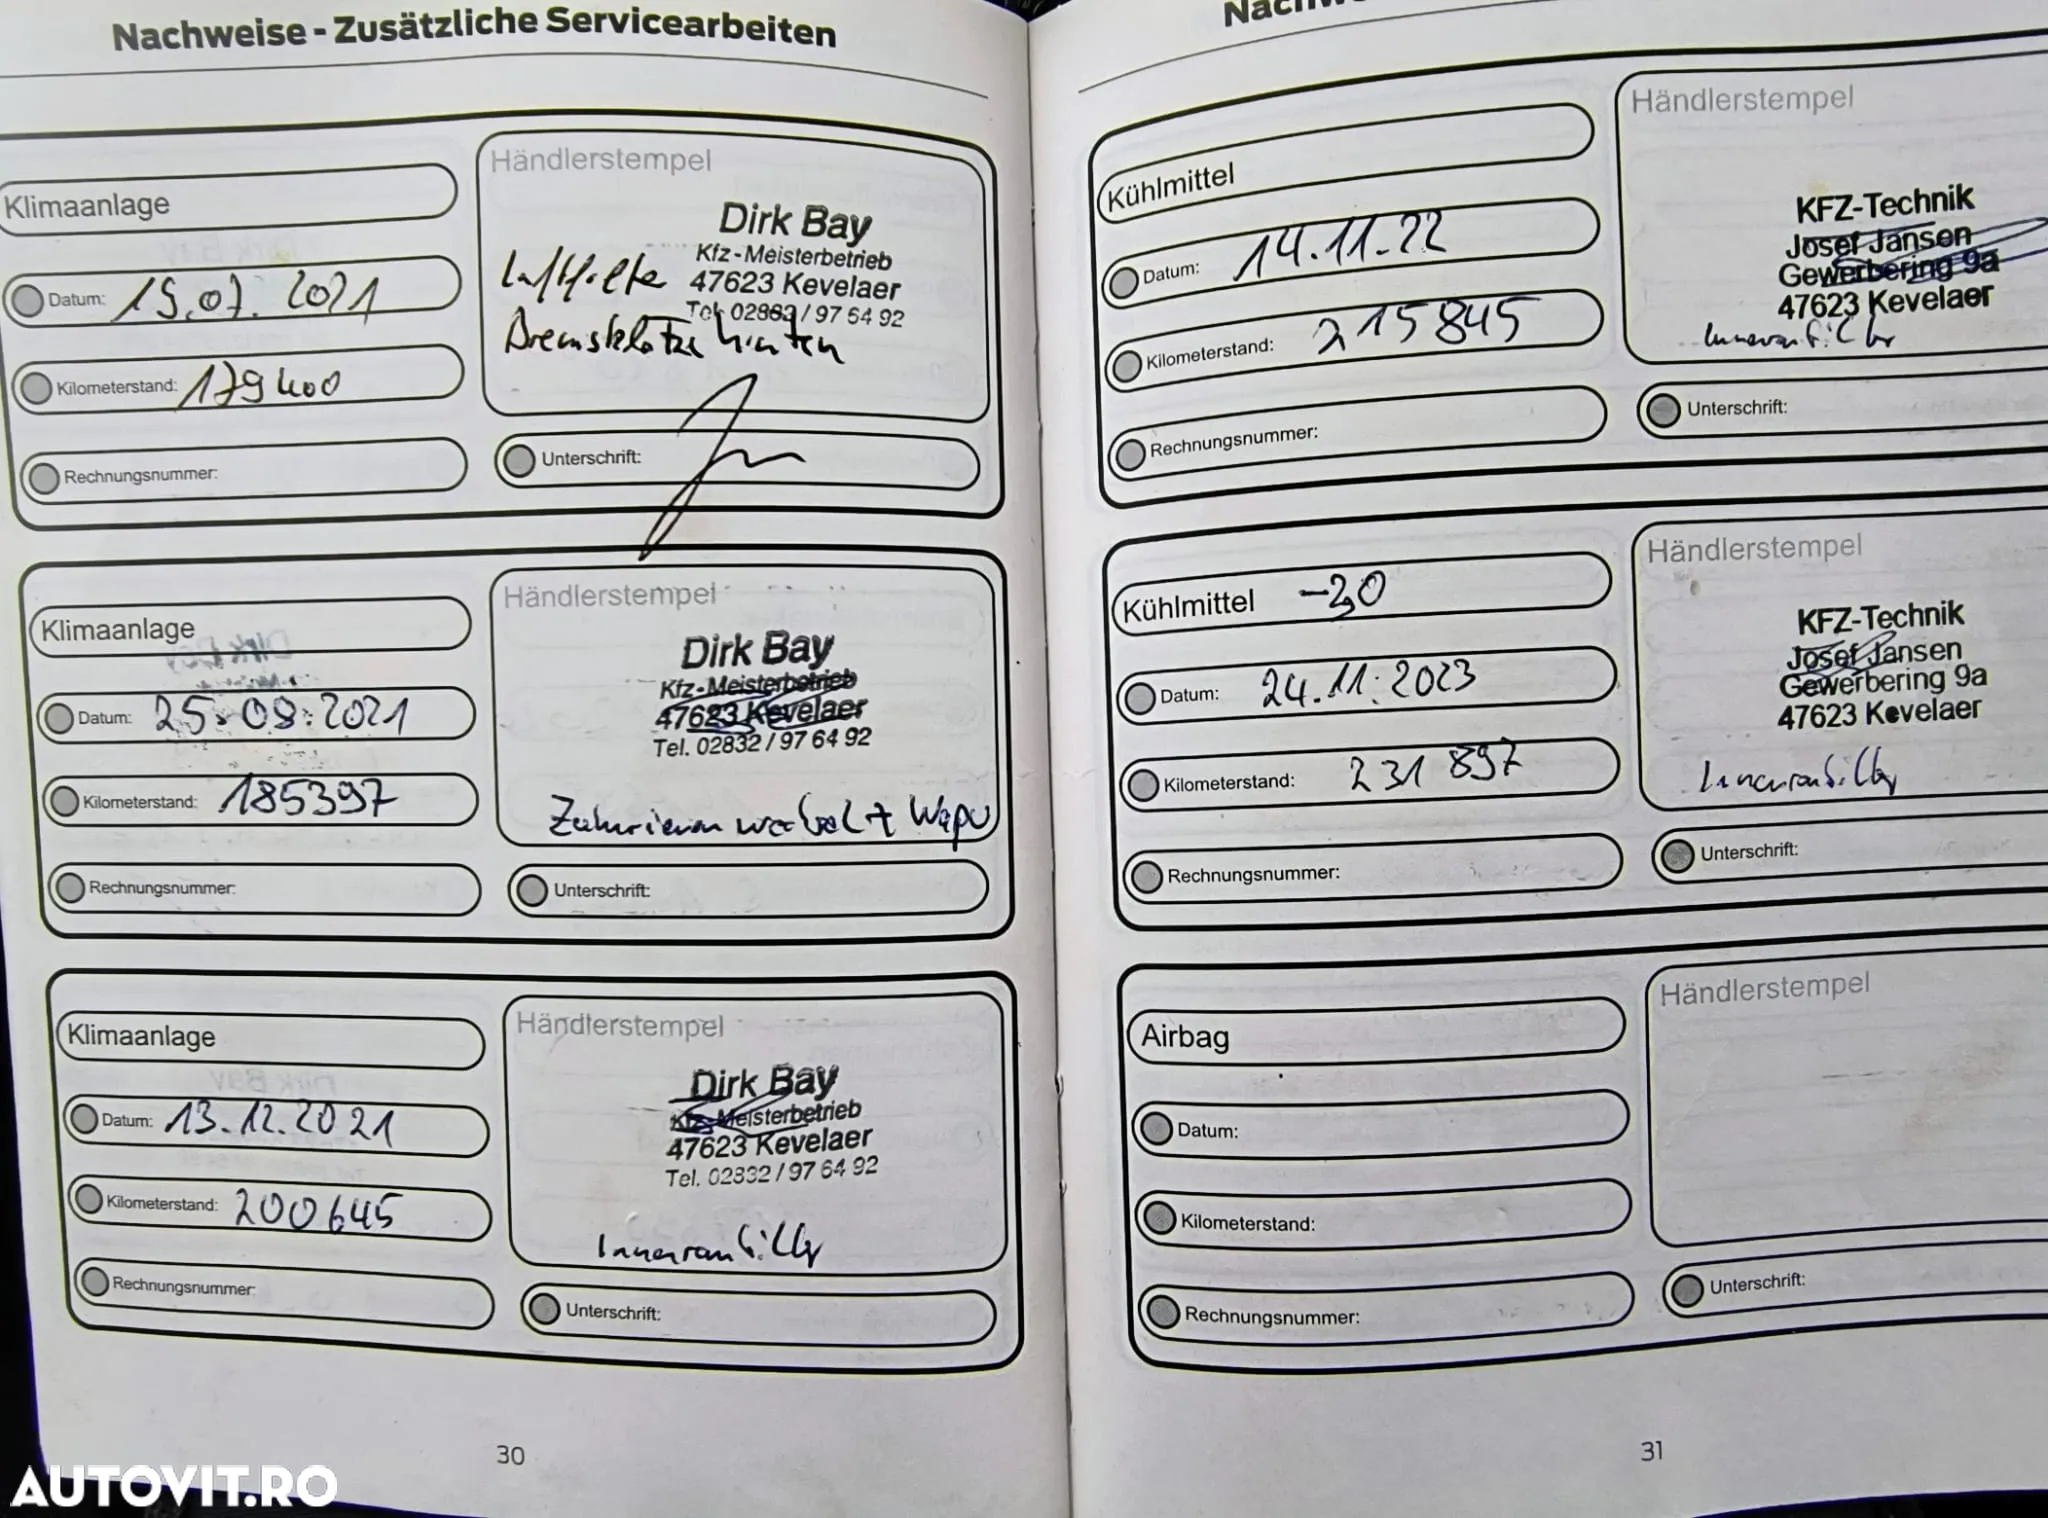 Nachweise - Zusätzliche Servicearbeiten
Klimaanlage
Datum: 15.07.2021
Kilometerstand: 179400
Rechnungsnummer:
Händlerstempel
Dirk Bay
Kfz-Meisterbetrieb
Luftfilter
47623 Kevelaer
Tel. 02832 / 97 64 92
Bremsklötze hinten
Unterschrift:
Klimaanlage
Datum: 25.09.2021
Kilometerstand: 185397
Rechnungsnummer:
Händlerstempel
Dirk Bay
Kfz-Meisterbetrieb
47623 Kevelaer
Tel. 02832 / 97 64 92
Zahnriemen wechsel + Wapu
Unterschrift:
Klimaanlage
Datum: 13.12.2021
Kilometerstand: 200645
Rechnungsnummer:
Händlerstempel
Dirk Bay
Kfz-Meisterbetrieb
47623 Kevelaer
Tel. 02832 / 97 64 92
Innenraumfilter
Unterschrift:
30
Kühlmittel
Datum: 14.11.22
Kilometerstand: 215845
Rechnungsnummer:
Händlerstempel
KFZ-Technik
Josef Jansen
Gewerbering 9a
47623 Kevelaer
Innenraumfilter
Unterschrift:
Kühlmittel -30
Datum: 24.11.2023
Kilometerstand: 231 897
Rechnungsnummer:
Händlerstempel
KFZ-Technik
Josef Jansen
Gewerbering 9a
47623 Kevelaer
Innenraumfilter
Unterschrift:
Airbag
Datum:
Kilometerstand:
Rechnungsnummer:
Händlerstempel
Unterschrift:
31
AUTOVIT.RO